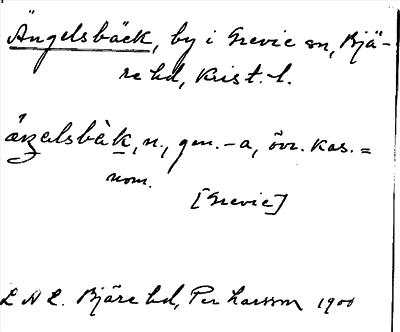 Ängelsbäck, by i Grevie sn, Bjä-
re hd, Krist. l.
ä̀nʒəlsbæ̀k, n., gen. -a, övr. kas. =
nom.
[Grevie]
L A L. Bjäre hd, Per Larsson 1900